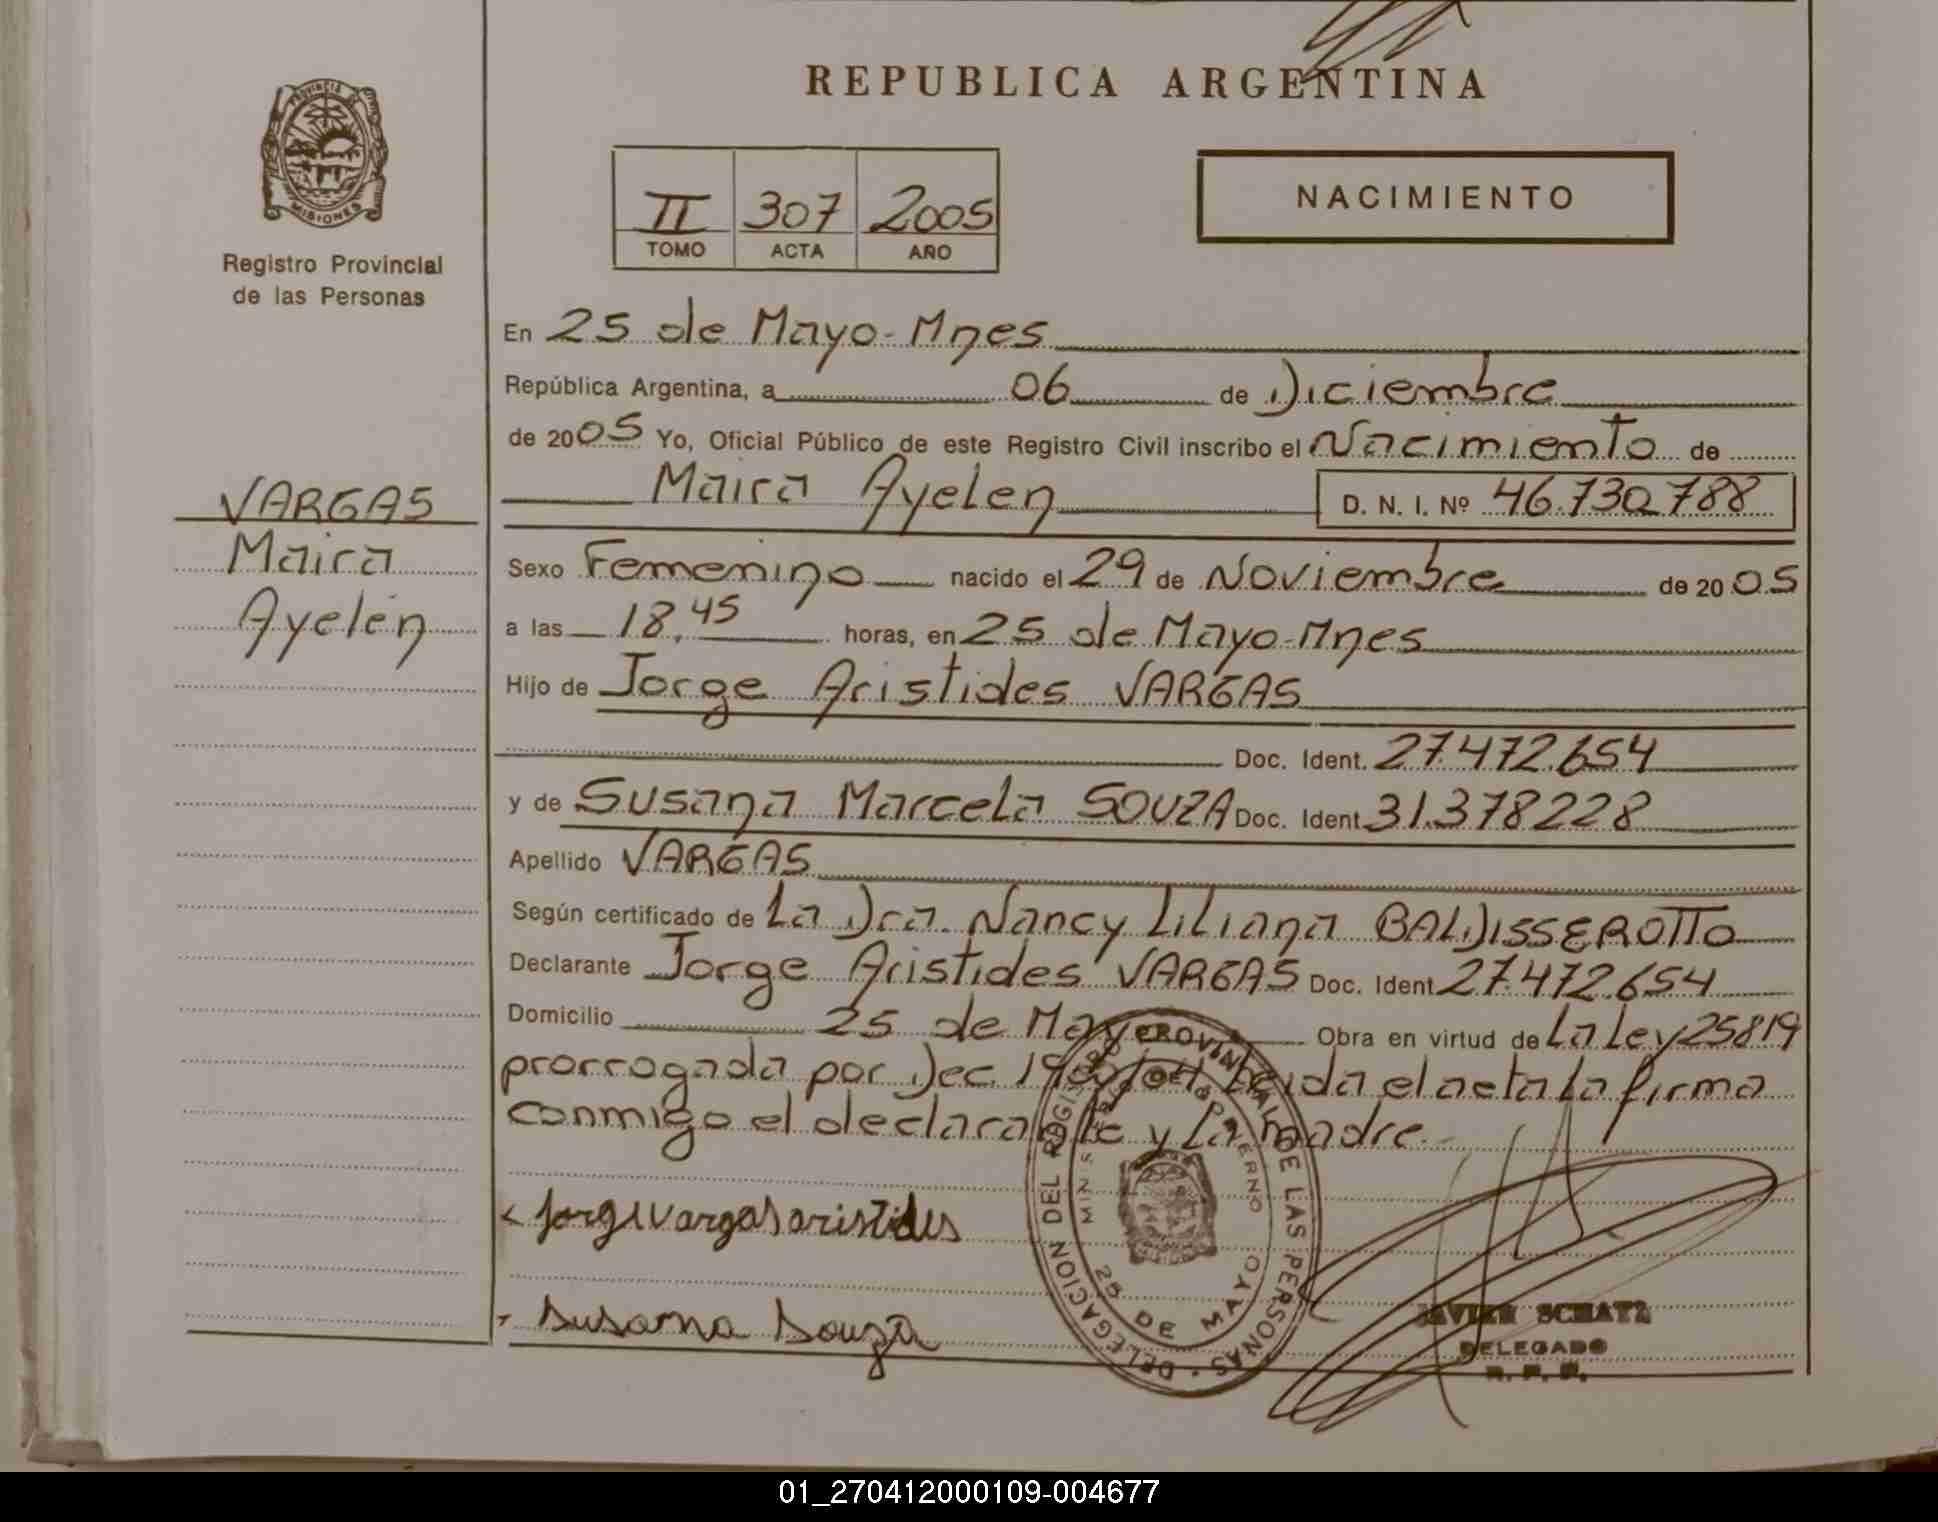 REPUBLICA ARGENTINA
PROVINCIA DE MISIONES
Registro Provincial
de las Personas
II 307 2005
TOMO ACTA AÑO
NACIMIENTO
VARGAS
Maira
Ayelén
En 25 de Mayo-Mnes
República Argentina, a 06 de Diciembre
de 2005 Yo, Oficial Público de este Registro Civil inscribo el Nacimiento de
Maira Ayelen D. N. I. Nº 46.730.788
Sexo Femenino nacido el 29 de Noviembre de 2005
a las 18,45 horas, en 25 de Mayo-Mnes
Hijo de Jorge Aristides VARGAS
Doc. Ident. 27.472.654
y de Susana Marcela SOUZA Doc. Ident. 31.378228
Apellido VARGAS
Según certificado de La Dra. Nancy Liliana BALDISSEROTTO
Declarante Jorge Aristides VARGAS Doc. Ident 27.472.654
Domicilio 25 de Mayo Obra en virtud de La Ley 25819
prorrogada por Dec. Leida el acta la firma
conmigo el declarante y la madre.
Jorge Vargas aristides
Susana Souza
DELEGACION DEL REGISTRO PROVINCIAL DE LAS PERSONAS
MINISTERIO DE GOBIERNO
25 DE MAYO
JAVIER SCHATZ
DELEGADO
R. P. P.
01_270412000109-004677